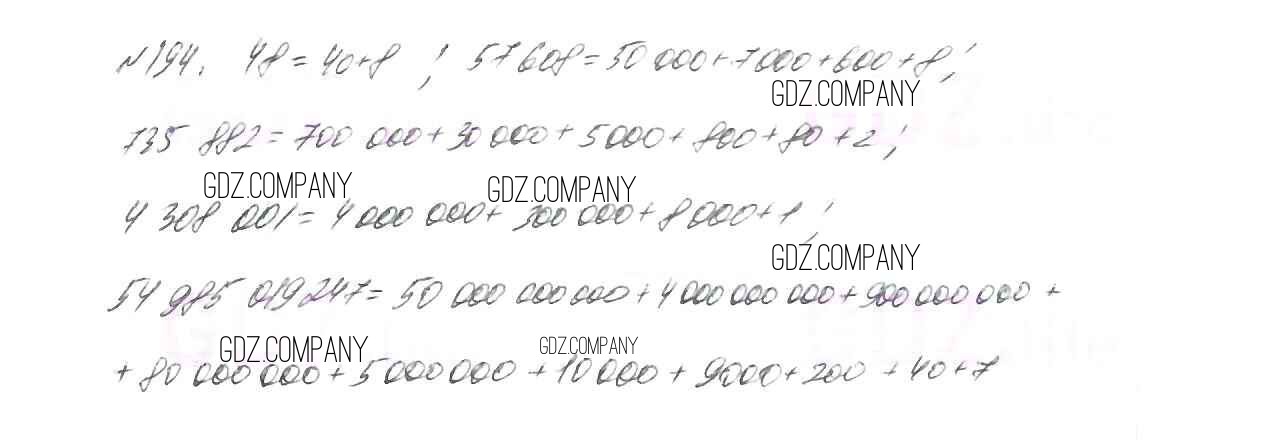 №194. 48 = 40+8 ; 57 608 = 50 000 + 7 000 + 600 + 8 ;
GDZ.COMPANY
735 882 = 700 000 + 30 000 + 5 000 + 800 + 80 + 2 ;
GDZ.COMPANY GDZ.COMPANY
4 308 001 = 4 000 000 + 300 000 + 8 000 + 1 ;
GDZ.COMPANY
54 985 019 247 = 50 000 000 000 + 4 000 000 000 + 900 000 000 +
GDZ.COMPANY GDZ.COMPANY
+ 80 000 000 + 5 000 000 + 10 000 + 9000 + 200 + 40 + 7